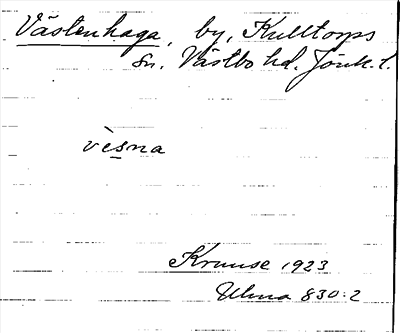 Västenhaga, by, Kulltorps
sn. Västbo hd. Jönk. l.
vèsna
Krause 1923
Ulma 830:2